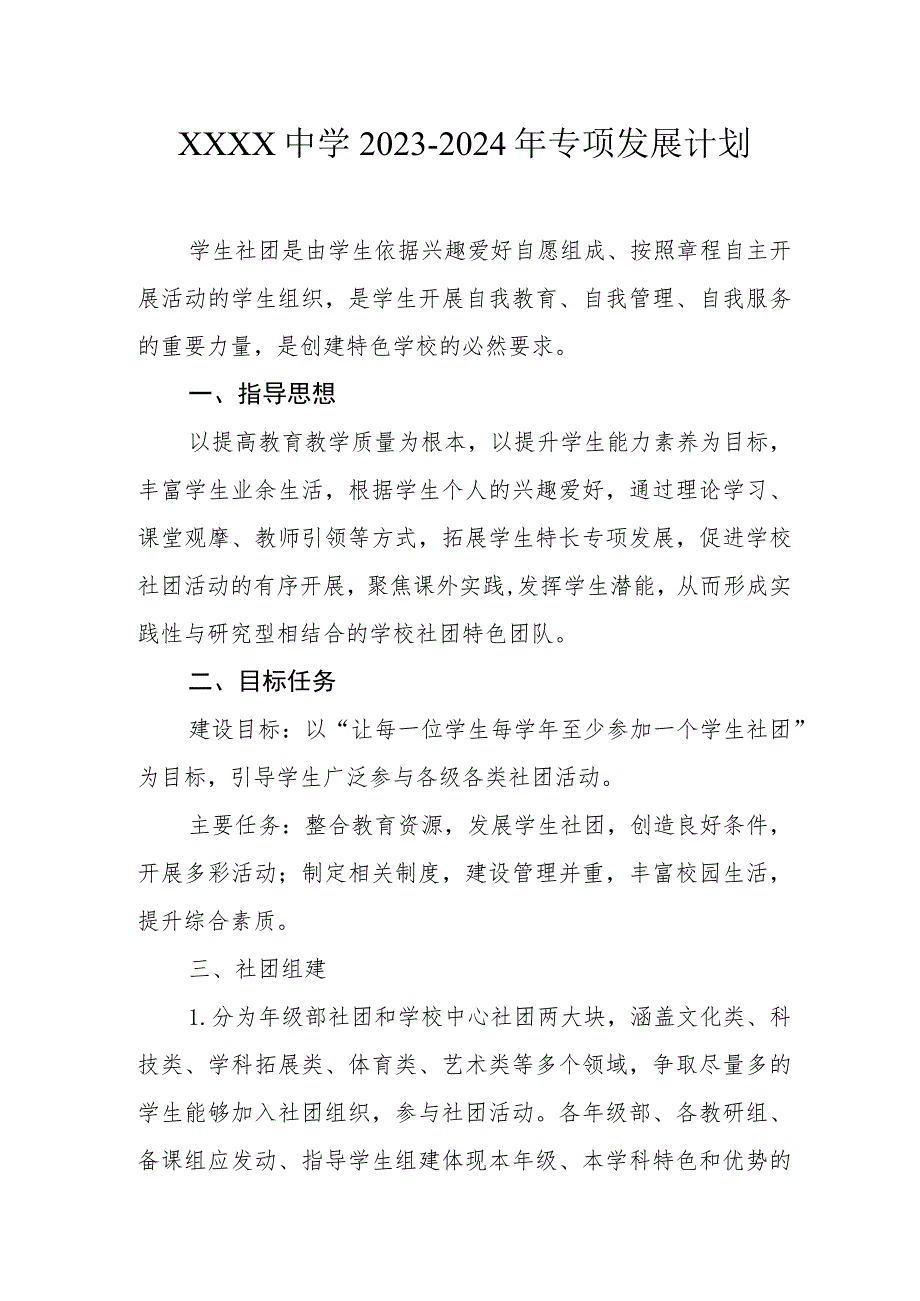 XXXX中学2023-2024年专项发展计划
学生社团是由学生依据兴趣爱好自愿组成、按照章程自主开
展活动的学生组织，是学生开展自我教育、自我管理、自我服务
的重要力量，是创建特色学校的必然要求。
一、指导思想
以提高教育教学质量为根本，以提升学生能力素养为目标，
丰富学生业余生活，根据学生个人的兴趣爱好，通过理论学习、
课堂观摩、教师引领等方式，拓展学生特长专项发展，促进学校
社团活动的有序开展，聚焦课外实践,发挥学生潜能，从而形成实
践性与研究型相结合的学校社团特色团队。
二、目标任务
建设目标：以“让每一位学生每学年至少参加一个学生社团”
为目标，引导学生广泛参与各级各类社团活动。
主要任务：整合教育资源，发展学生社团，创造良好条件，
开展多彩活动；制定相关制度，建设管理并重，丰富校园生活，
提升综合素质。
三、社团组建
1.分为年级部社团和学校中心社团两大块，涵盖文化类、科
技类、学科拓展类、体育类、艺术类等多个领域，争取尽量多的
学生能够加入社团组织，参与社团活动。各年级部、各教研组、
备课组应发动、指导学生组建体现本年级、本学科特色和优势的